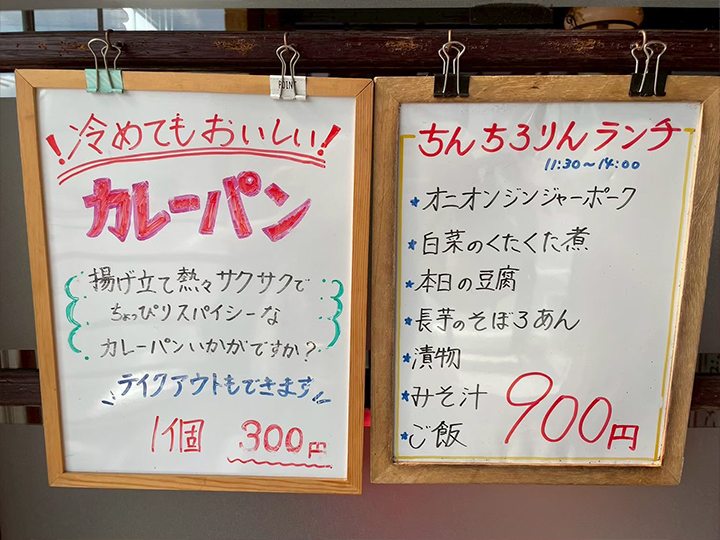 POINT
!冷めてもおいしい!
カレーパン
揚げ立て熱々サクサクで
ちょっぴりスパイシーな
カレーパンいかがですか?
テイクアウトもできます
1個 300円
ちんちろりんランチ
11:30~14:00
★オニオンジンジャーポーク
★白菜のくたくた煮
★本日の豆腐
★長芋のそぼろあん
★漬物
★みそ汁
★ご飯
900円